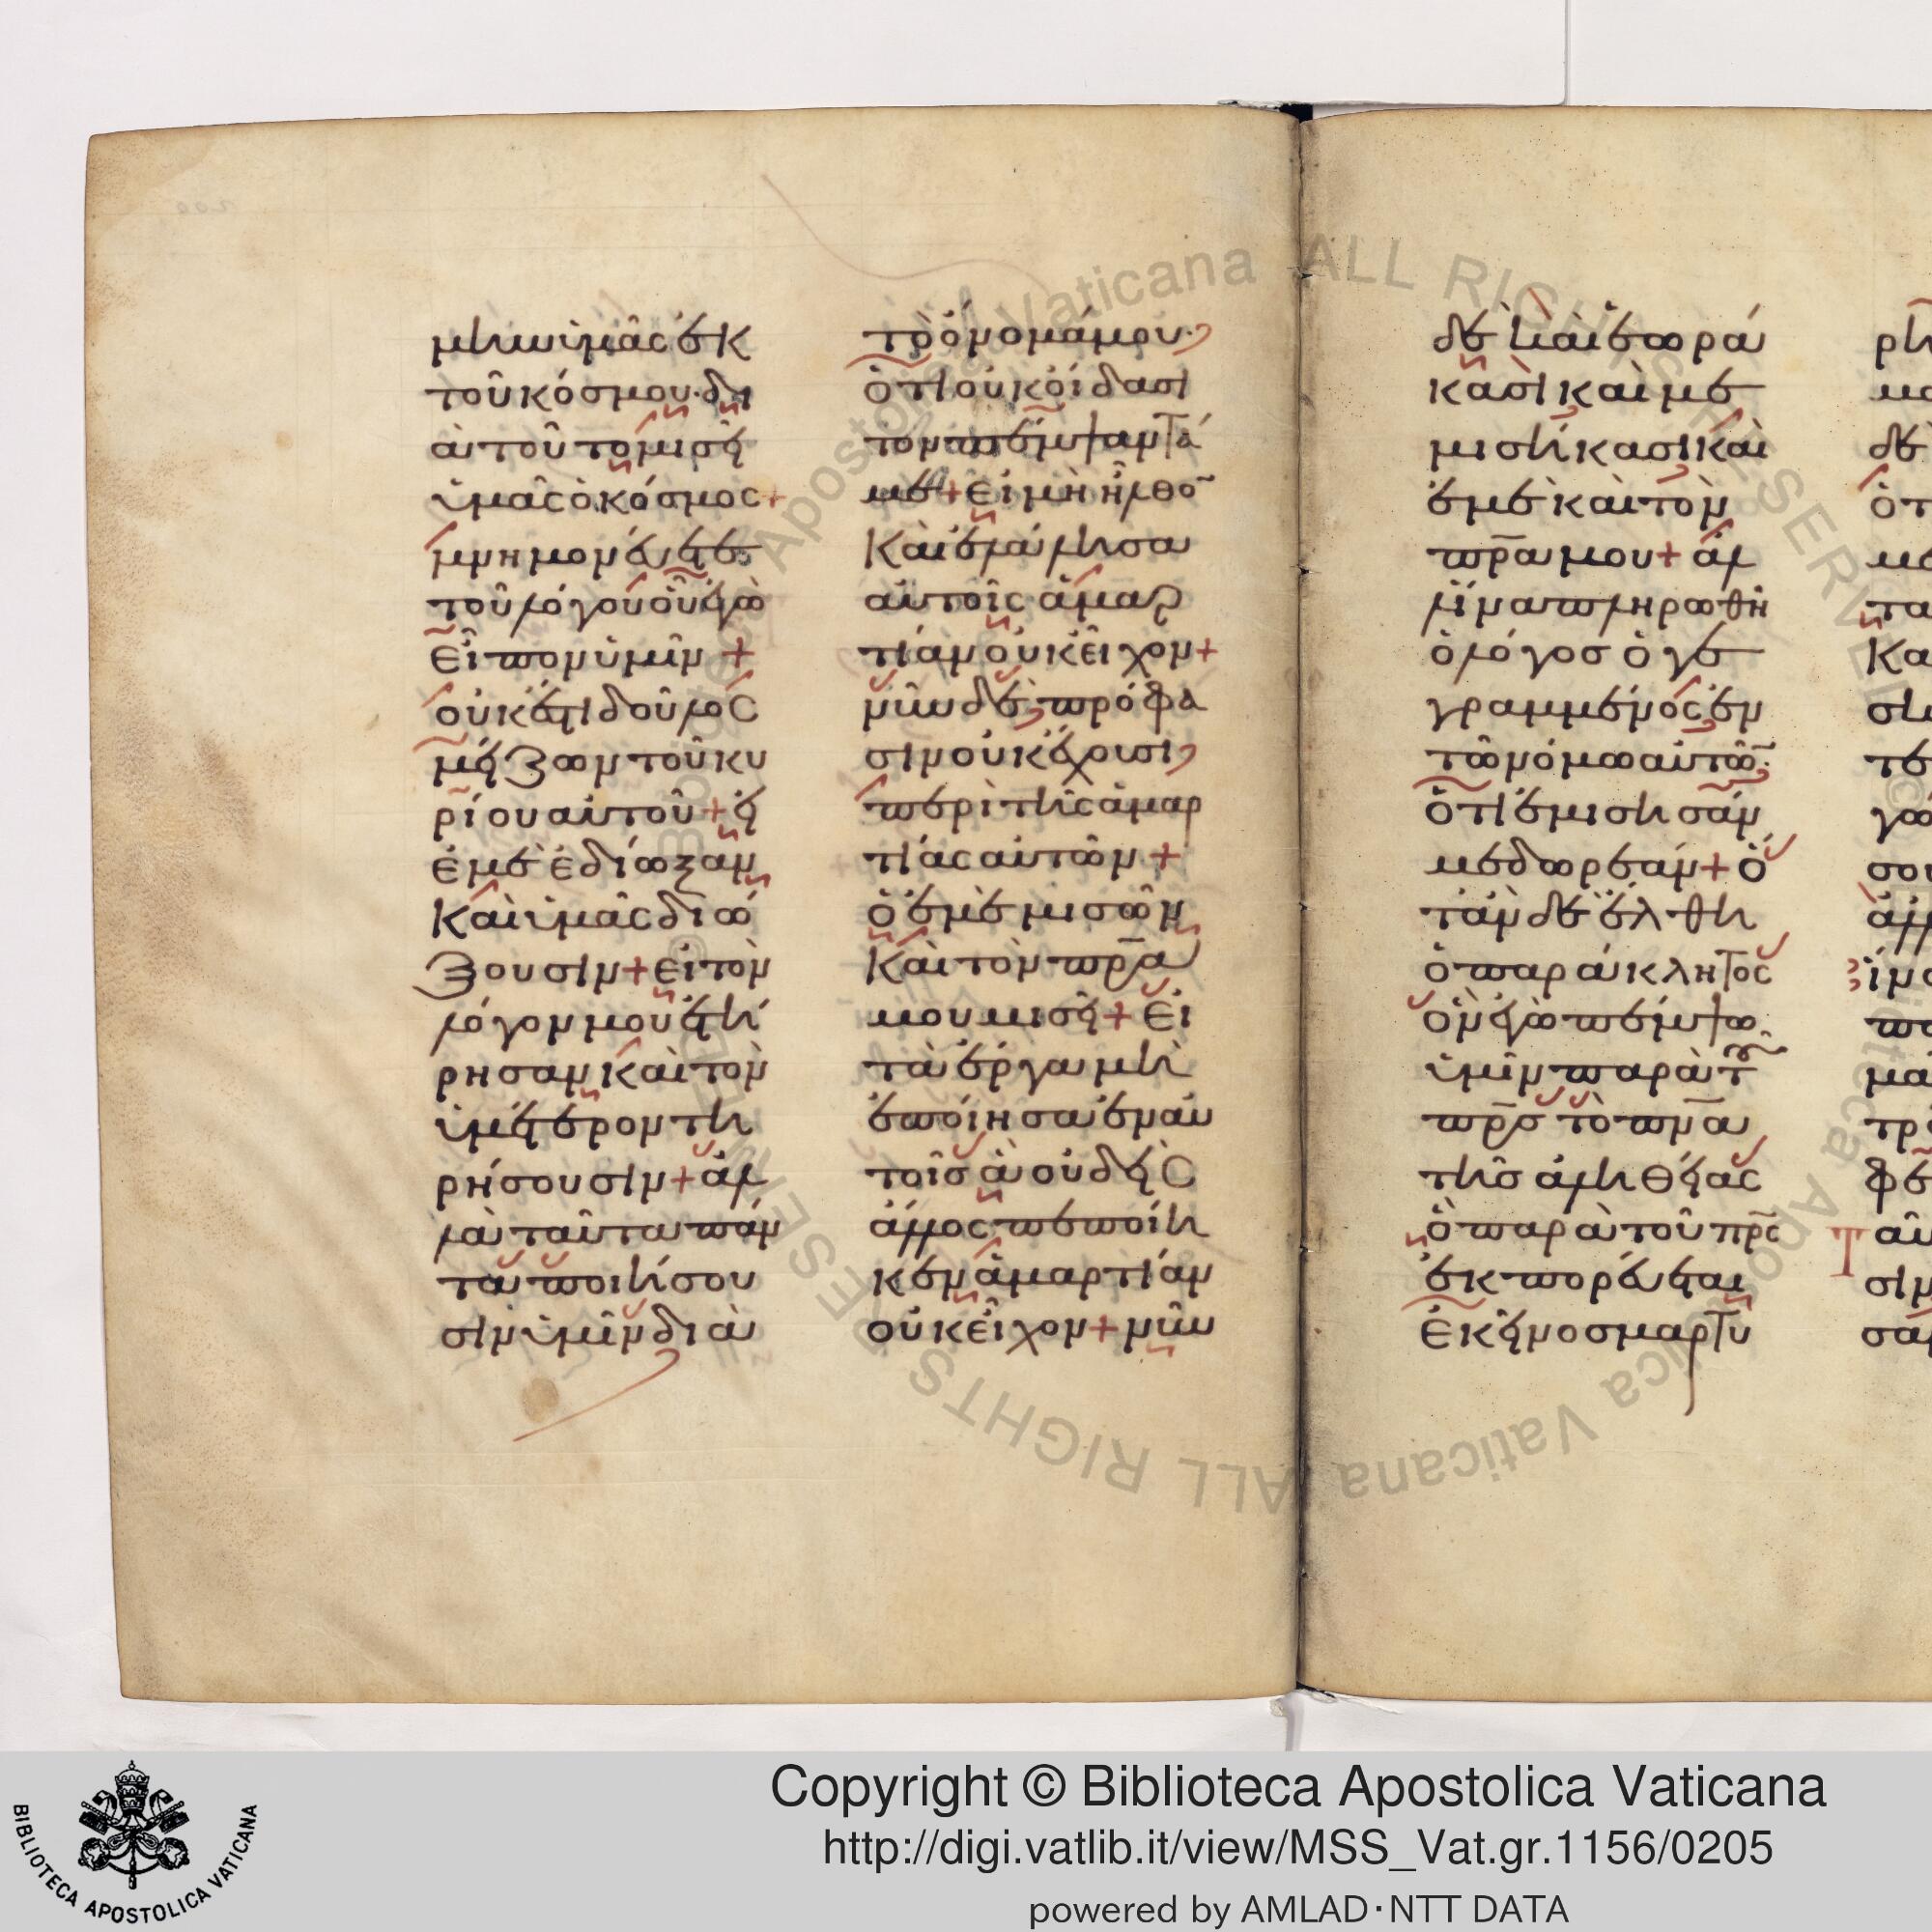 μην ὑμᾶς ἐκ
τοῦ κόσμου· δι
ὰ τοῦτο μισεῖ
ὑμᾶς ὁ κόσμος +
μνημονεύετε
τοῦ λόγου οὗ ἐγὼ
εἶπον ὑμῖν +
οὐκ ἔστι δοῦλος
μείζων τοῦ κυ
ρίου αὐτοῦ + εἰ
ἐμὲ ἐδίωξαν
καὶ ὑμᾶς διώ
ξουσιν + εἰ τὸν
λόγον μου ἐτή
ρησαν καὶ τὸν
ὑμέτερον τη
ρήσουσιν + ἀλ
λὰ ταῦτα πάν
τα ποιήσου
σιν ὑμῖν διὰ
τὸ ὄνομά μου·
ὅτι οὐκ οἴδασι
τὸν πέμψαντά
με + εἰ μὴ ἦλθο̅
καὶ ἐλάλησα
αὐτοῖς ἁμαρ
τίαν οὐκ εἶχον +
νῦν δὲ πρόφα
σιν οὐκ ἔχουσι
περὶ τῆς ἁμαρ
τίας αὐτῶν +
ὁ ἐμὲ μισῶν
καὶ τὸν πρ̅α
μου μισεῖ + εἰ
τὰ ἔργα μὴ
ἐποίησα ἐν αὐ
τοῖς ἃ οὐδεὶς
ἄλλος πεποίη
κεν ἁμαρτίαν
οὐκ εἶχον + νῦν
δὲ καὶ ἑωρά
κασι καὶ με
μισήκασι καὶ
ἐμὲ καὶ τὸν
πρ̅α μου + ἀλ
λ' ἵνα πληρωθῆ
ὁ λόγος ὁ γε
γραμμένος ἐν
τῶ νόμω αὐτῶ̅·
ὅτι ἐμίσησάν
με δωρεάν + ὅ
ταν δὲ ἔλθη
ὁ παράκλητος
ὃν ἐγὼ πέμψω
ὑμῖν παρὰ τοῦ
πρ̅ς τὸ πν̅α
τῆς ἀληθείας
ὃ παρὰ τοῦ πρ̅ς
ἐκπορεύεται
ἐκεῖνος μαρτυ
Copyright © Biblioteca Apostolica Vaticana
http://digi.vatlib.it/view/MSS_Vat.gr.1156/0205
powered by AMLAD·NTT DATA
BIBLIOTECA APOSTOLICA VATICANA